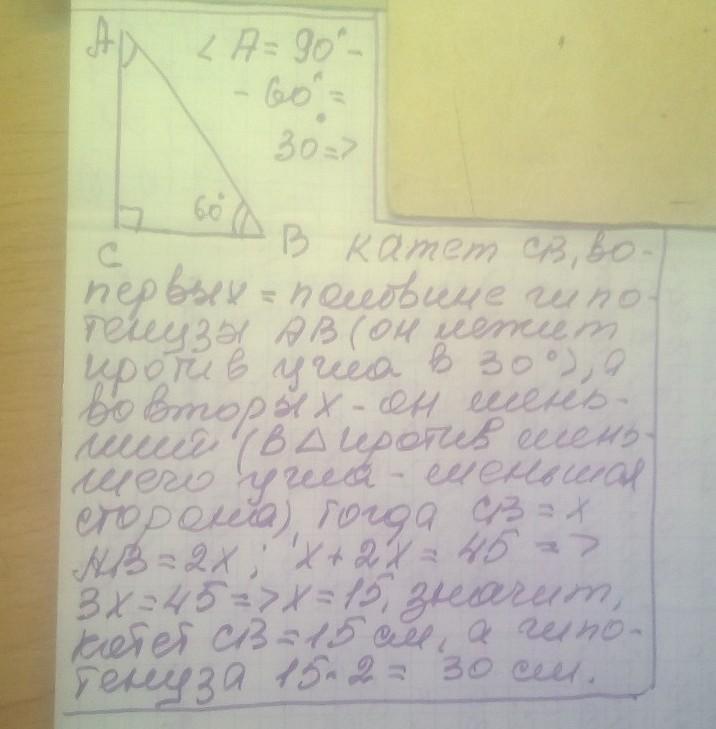 A
∠A = 90° -
- 60° =
30° =>
60°
C
B катет CB, во-
первых = половине гипо-
тенузы AB (он лежит
против угла в 30°), а
во вторых - он мень-
ший (в △ против мень-
шего угла - меньшая
сторона), тогда CB = x
AB = 2x; x + 2x = 45 =>
3x = 45 => x = 15, значит,
катет CB = 15 см, а гипо-
тенуза 15·2 = 30 см.